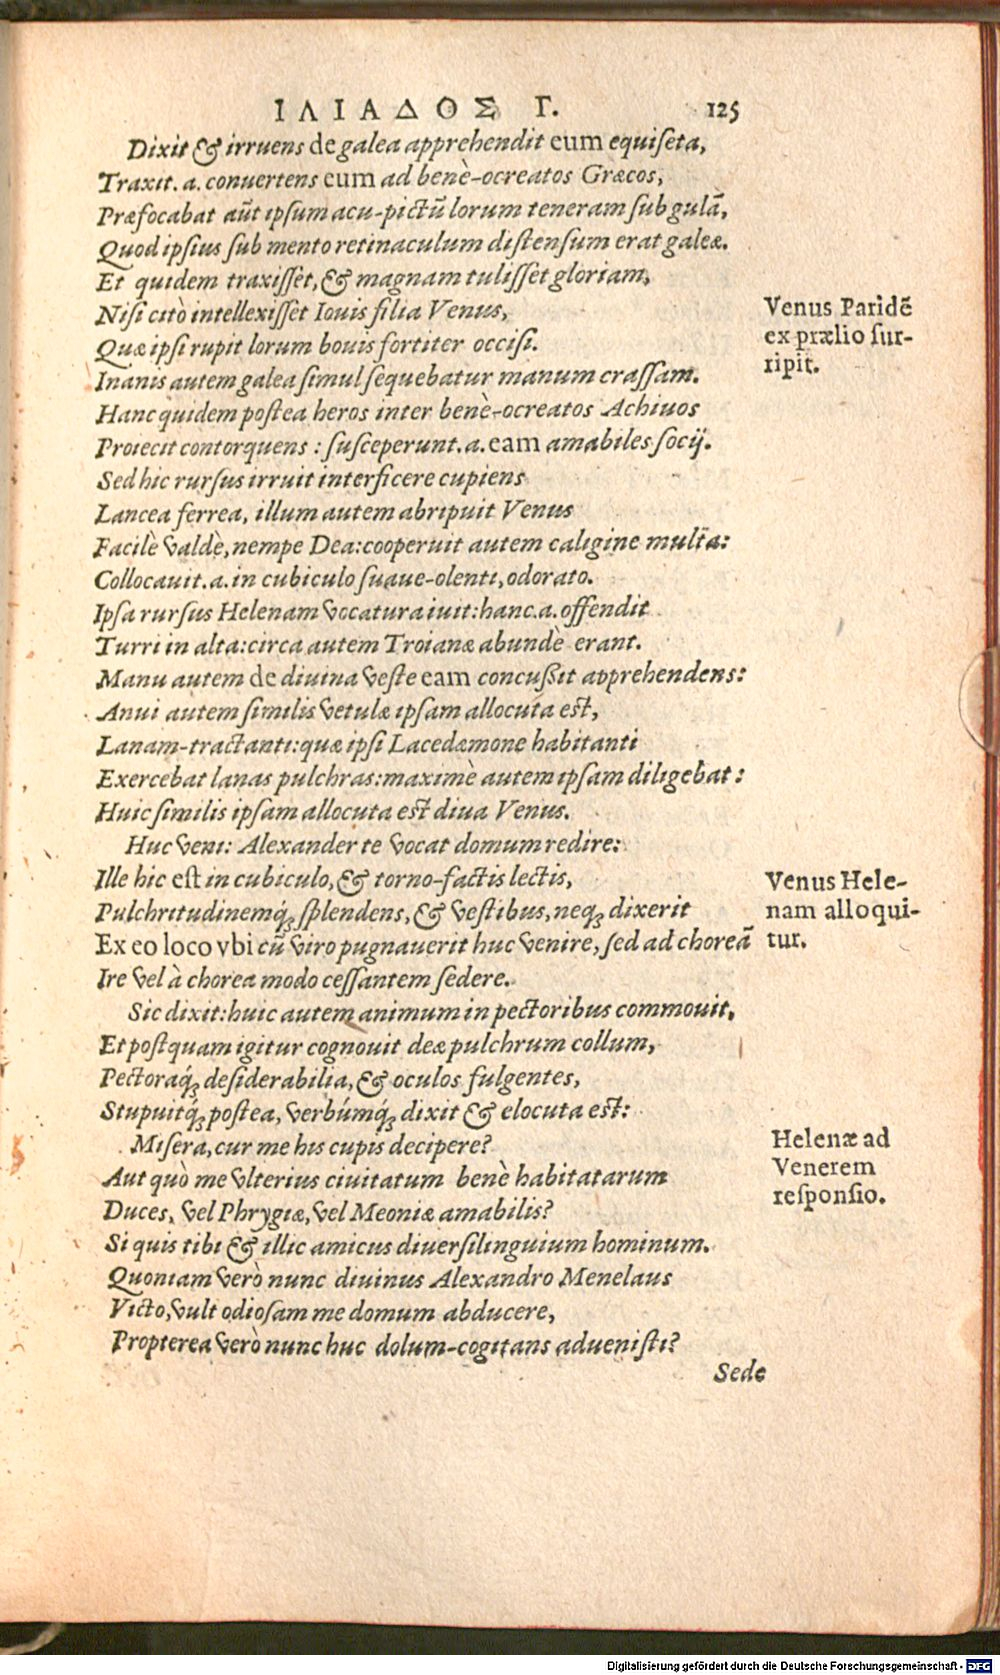 ΙΛΙΑΔΟΣ Γ. 125
Dixit & irruens de galea apprehendit eum equiseta,
Traxit. a. conuertens eum ad benè-ocreatos Græcos,
Præfocabat aūt ipsum acu-pictū lorum teneram sub gulā,
Quod ipsius sub mento retinaculum distensum erat galeæ.
Et quidem traxisset, & magnam tulisset gloriam,
Nisi citò intellexisset Iouis filia Venus,
Quæ ipsi rupit lorum bouis fortiter occisi.
Inanis autem galea simul sequebatur manum crassam.
Hanc quidem postea heros inter benè-ocreatos Achiuos
Proiecit contorquens : susceperunt. a. eam amabiles socij.
Sed hic rursus irruit interficere cupiens
Lancea ferrea, illum autem abripuit Venus
Facilè valdè, nempe Dea: cooperuit autem caligine multa:
Collocauit. a. in cubiculo suaue-olenti, odorato.
Ipsa rursus Helenam vocatura iuit: hanc. a. offendit
Turri in alta: circa autem Troianæ abundè erant.
Manu autem de diuina veste eam concussit apprehendens:
Anui autem similis vetulæ ipsam allocuta est,
Lanam-tractanti: quæ ipsi Lacedæmone habitanti
Exercebat lanas pulchras: maximè autem ipsam diligebat:
Huic similis ipsam allocuta est diua Venus.
Huc veni: Alexander te vocat domum redire:
Ille hic est in cubiculo, & torno-factis lectis,
Pulchritudinemq́; splendens, & vestibus, neq; dixerit
Ex eo loco vbi cū viro pugnauerit huc venire, sed ad choreā
Ire vel à chorea modo cessantem sedere.
Sic dixit: huic autem animum in pectoribus commouit,
Et postquam igitur cognouit deæ pulchrum collum,
Pectoraq́; desiderabilia, & oculos fulgentes,
Stupuitq́; postea, verbúmq́; dixit & elocuta est:
Misera, cur me his cupis decipere?
Aut quò me vlterius ciuitatum benè habitatarum
Duces, vel Phrygiæ, vel Meoniæ amabilis?
Si quis tibi & illic amicus diuersilinguium hominum.
Quoniam verò nunc diuinus Alexandro Menelaus
Victo, vult odiosam me domum abducere,
Propterea verò nunc huc dolum-cogitans aduenisti?
Sede
Venus Paridē
ex prælio sur-
ripit.
Venus Hele-
nam alloqui-
tur.
Helenæ ad
Venerem
responsio.
Digitalisierung gefördert durch die Deutsche Forschungsgemeinschaft - DFG